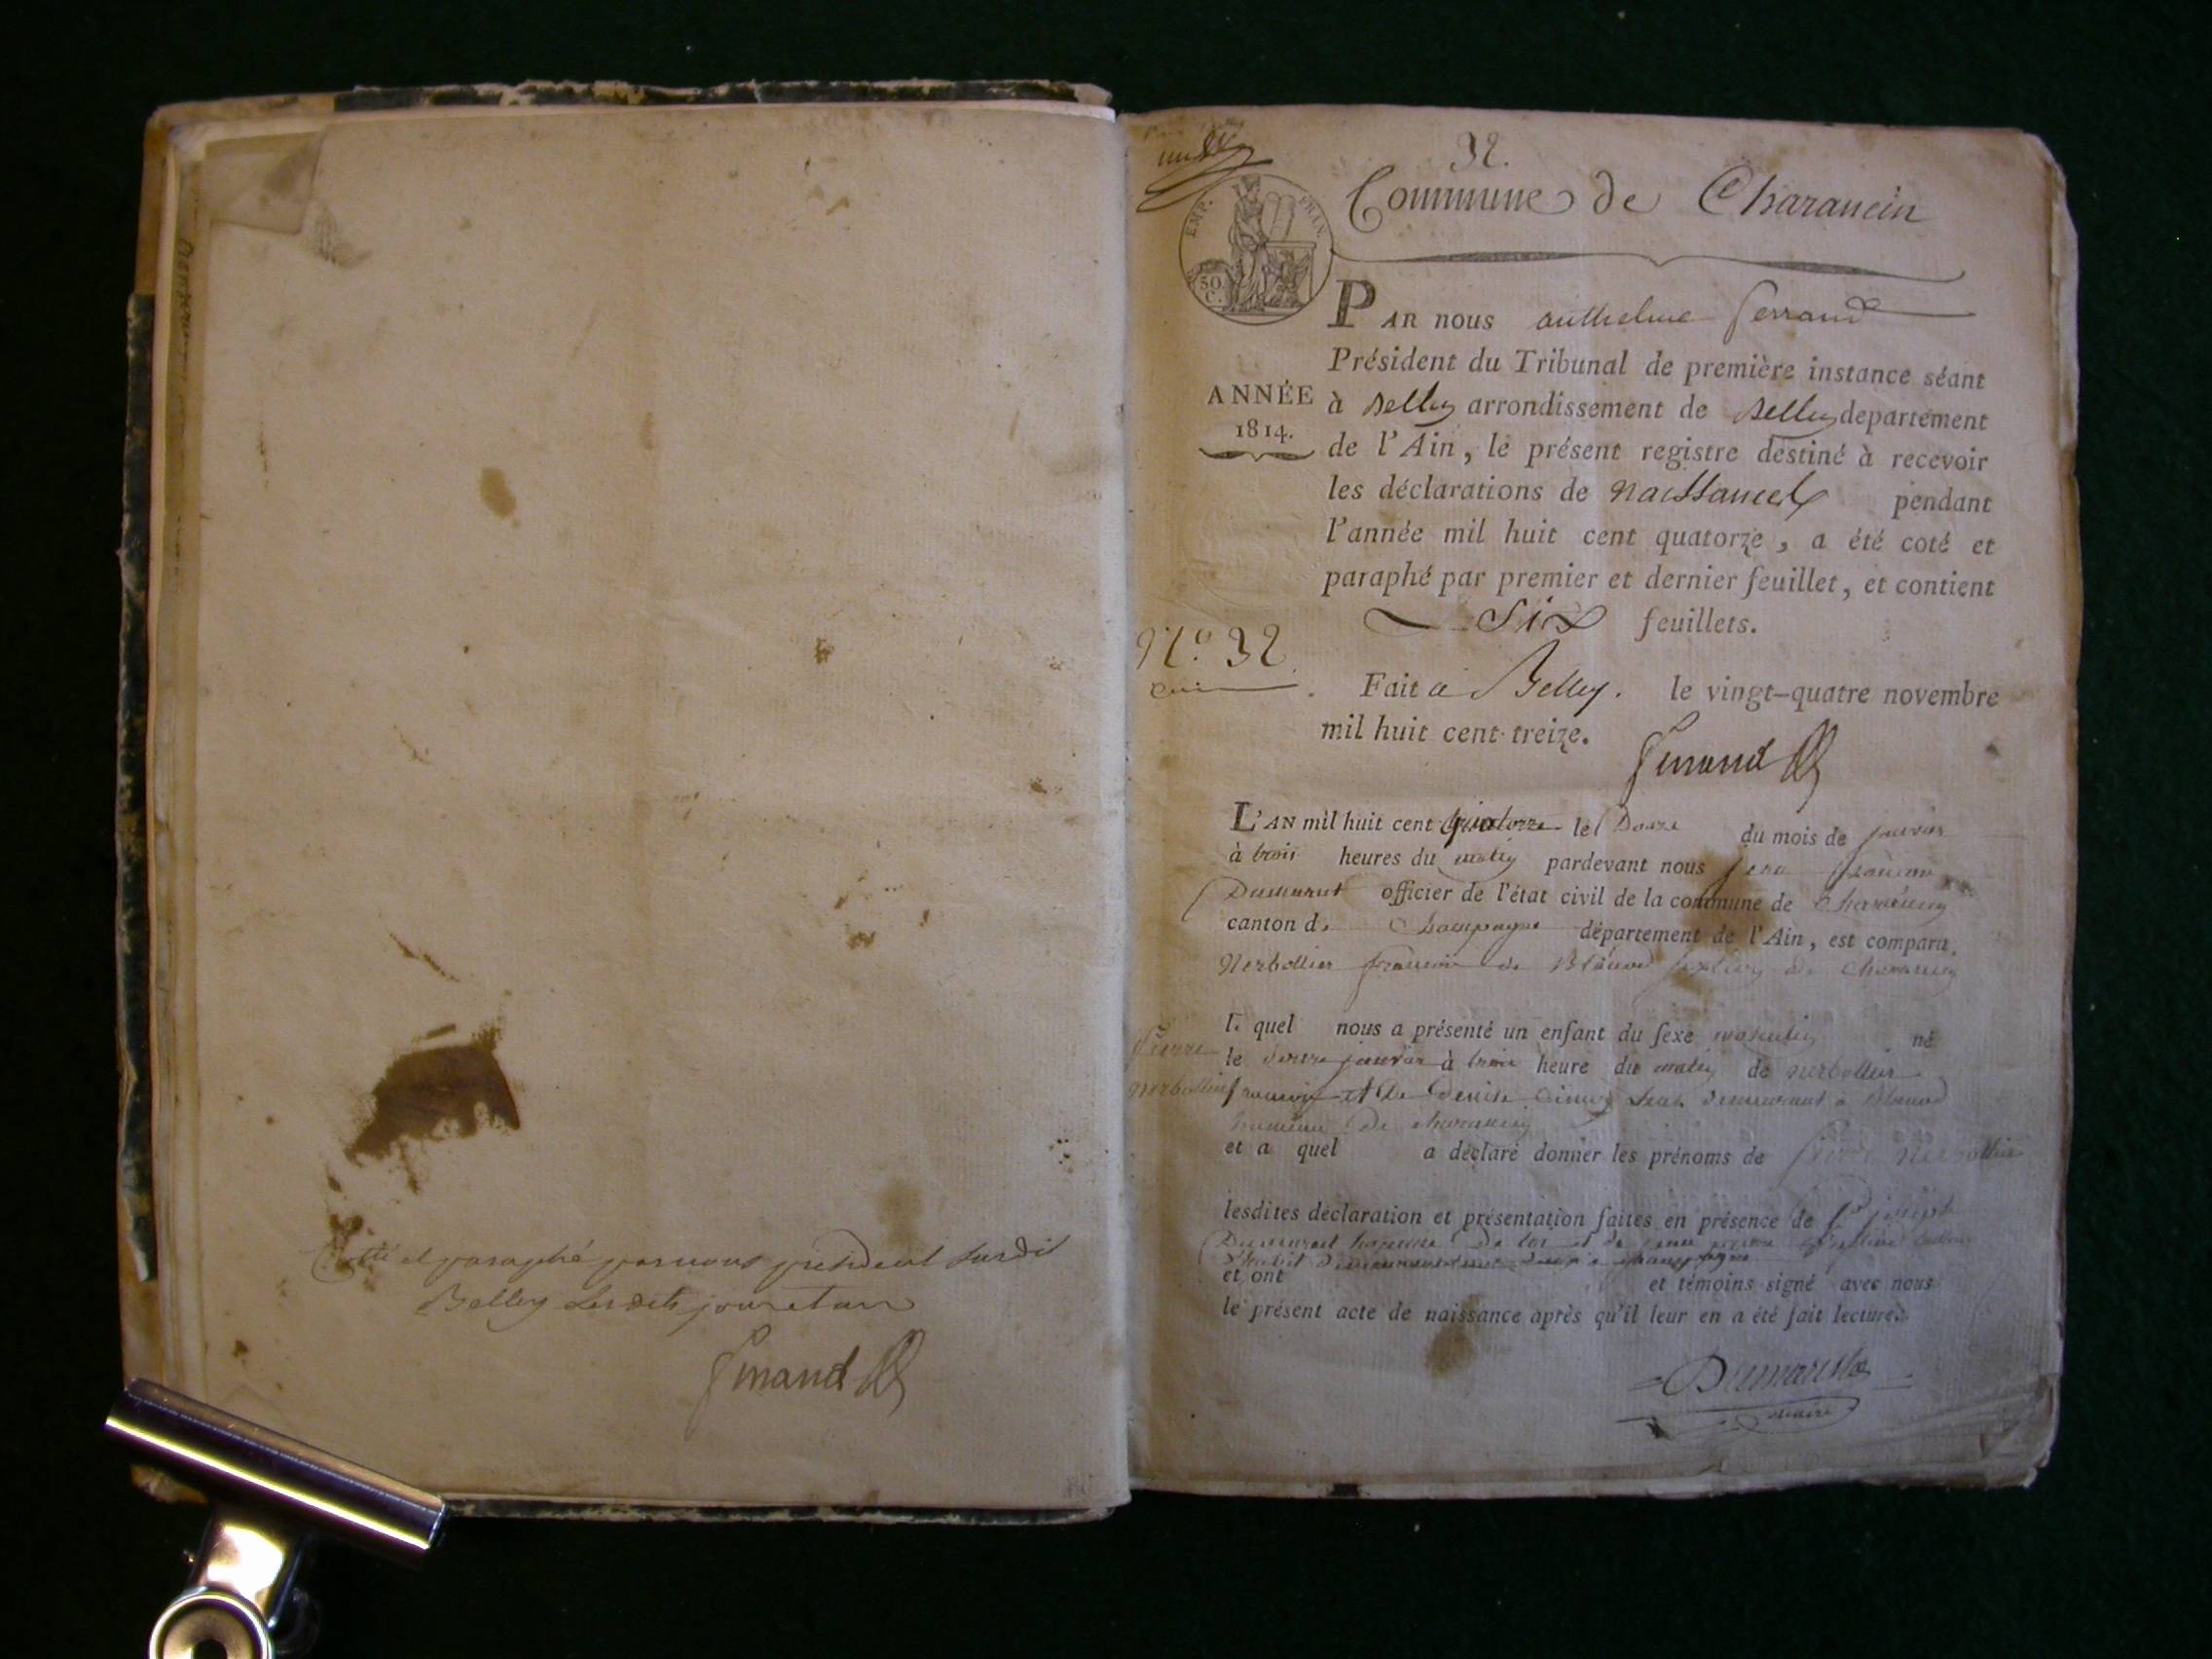 Cotté et paraphé par nous président susdit
Belley lesdits jour et an
32.
Commune de Charancin
EMP. FRAN.
50 C.
PAR nous anthelme ferrand
Président du Tribunal de première instance séant
ANNÉE
1814.
à Belley arrondissement de Belley département
de l'Ain, le présent registre destiné à recevoir
les déclarations de naissances pendant
l'année mil huit cent quatorze, a été coté et
paraphé par premier et dernier feuillet, et contient
six feuillets.
N.o 32
Fait à Belley. le vingt-quatre novembre
mil huit cent treize.
ferrand
L'AN mil huit cent quatorze le Douze du mois de janvier
à trois heures du matin pardevant nous jean françois
Dumarest officier de l'état civil de la commune de Charancin
canton de Champagne département de l'Ain, est comparu
Nerbollier françois de
le quel nous a présenté un enfant du sexe masculin né
pierre
nerbollier
le douze janvier à trois heure du matin de nerbollier
françois et De Denise demeurant a
hameau de charancin
et a quel a déclaré donner les prénoms de pierre Nerbollier
lesdites déclaration et présentation faites en présence de joseph
Dumarest
et ont et témoins signé avec nous
le présent acte de naissance après qu'il leur en a été fait lecture.
Dumarest
maire